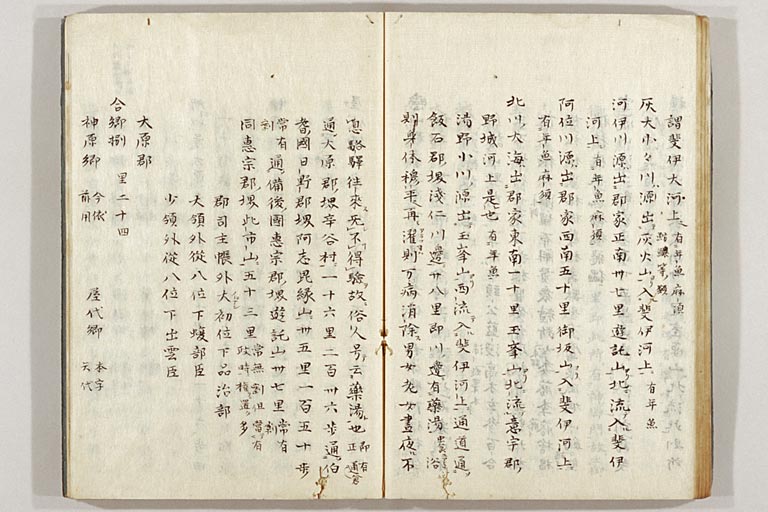 謂斐伊大河上 有年魚麻須
灰大小々川源出灰火山入斐伊河上 有年魚
河伊川源出郡家正南卅七里遊託山北流入斐伊
河上 有年魚麻須
阿位川源出郡家西南五十里御坂山入斐伊河上
有年魚麻須
北川大海出郡家東南一十里玉峯山北流意宇郡
野城河上是也 有年魚
湯野小川源出玉峯山西流入斐伊河上通道通
飯石郡堺淺仁川邊廿八里即川邊有藥湯 浴
則身休穆平再濯則万病消除男女老女晝夜不
息駱驛往來无不得驗故俗人号云藥湯也 即有正倉
通大原郡堺辛谷村一十六里二百卅六歩通伯
耆國日野郡堺阿志毘縁山卅五里一百五十歩
常有剗通備後國惠宗郡堺遊託山卅七里常有剗
同惠宗郡堺比市山五十三里 常無剗但當有政時權置多
郡司主帳外大初位下品治部
大領外從八位下蝮部臣
少領外從八位下出雲臣
大原郡
合郷捌 里二十四
神原郷 今依前用 屋代郷 本字矢代